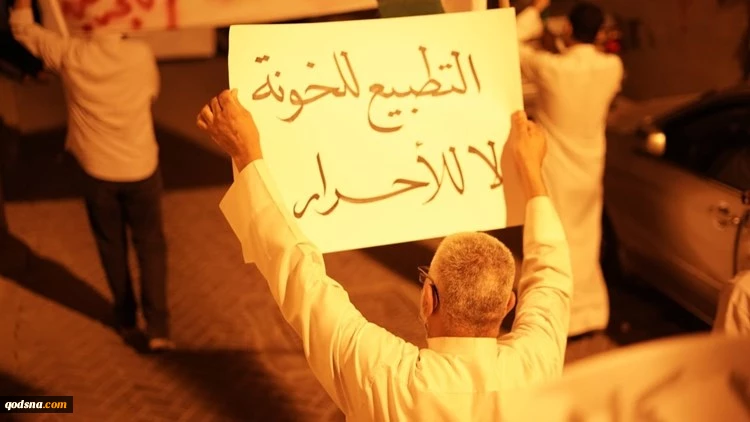 التطبيع للخونة
لا للأحرار
qodsna.com